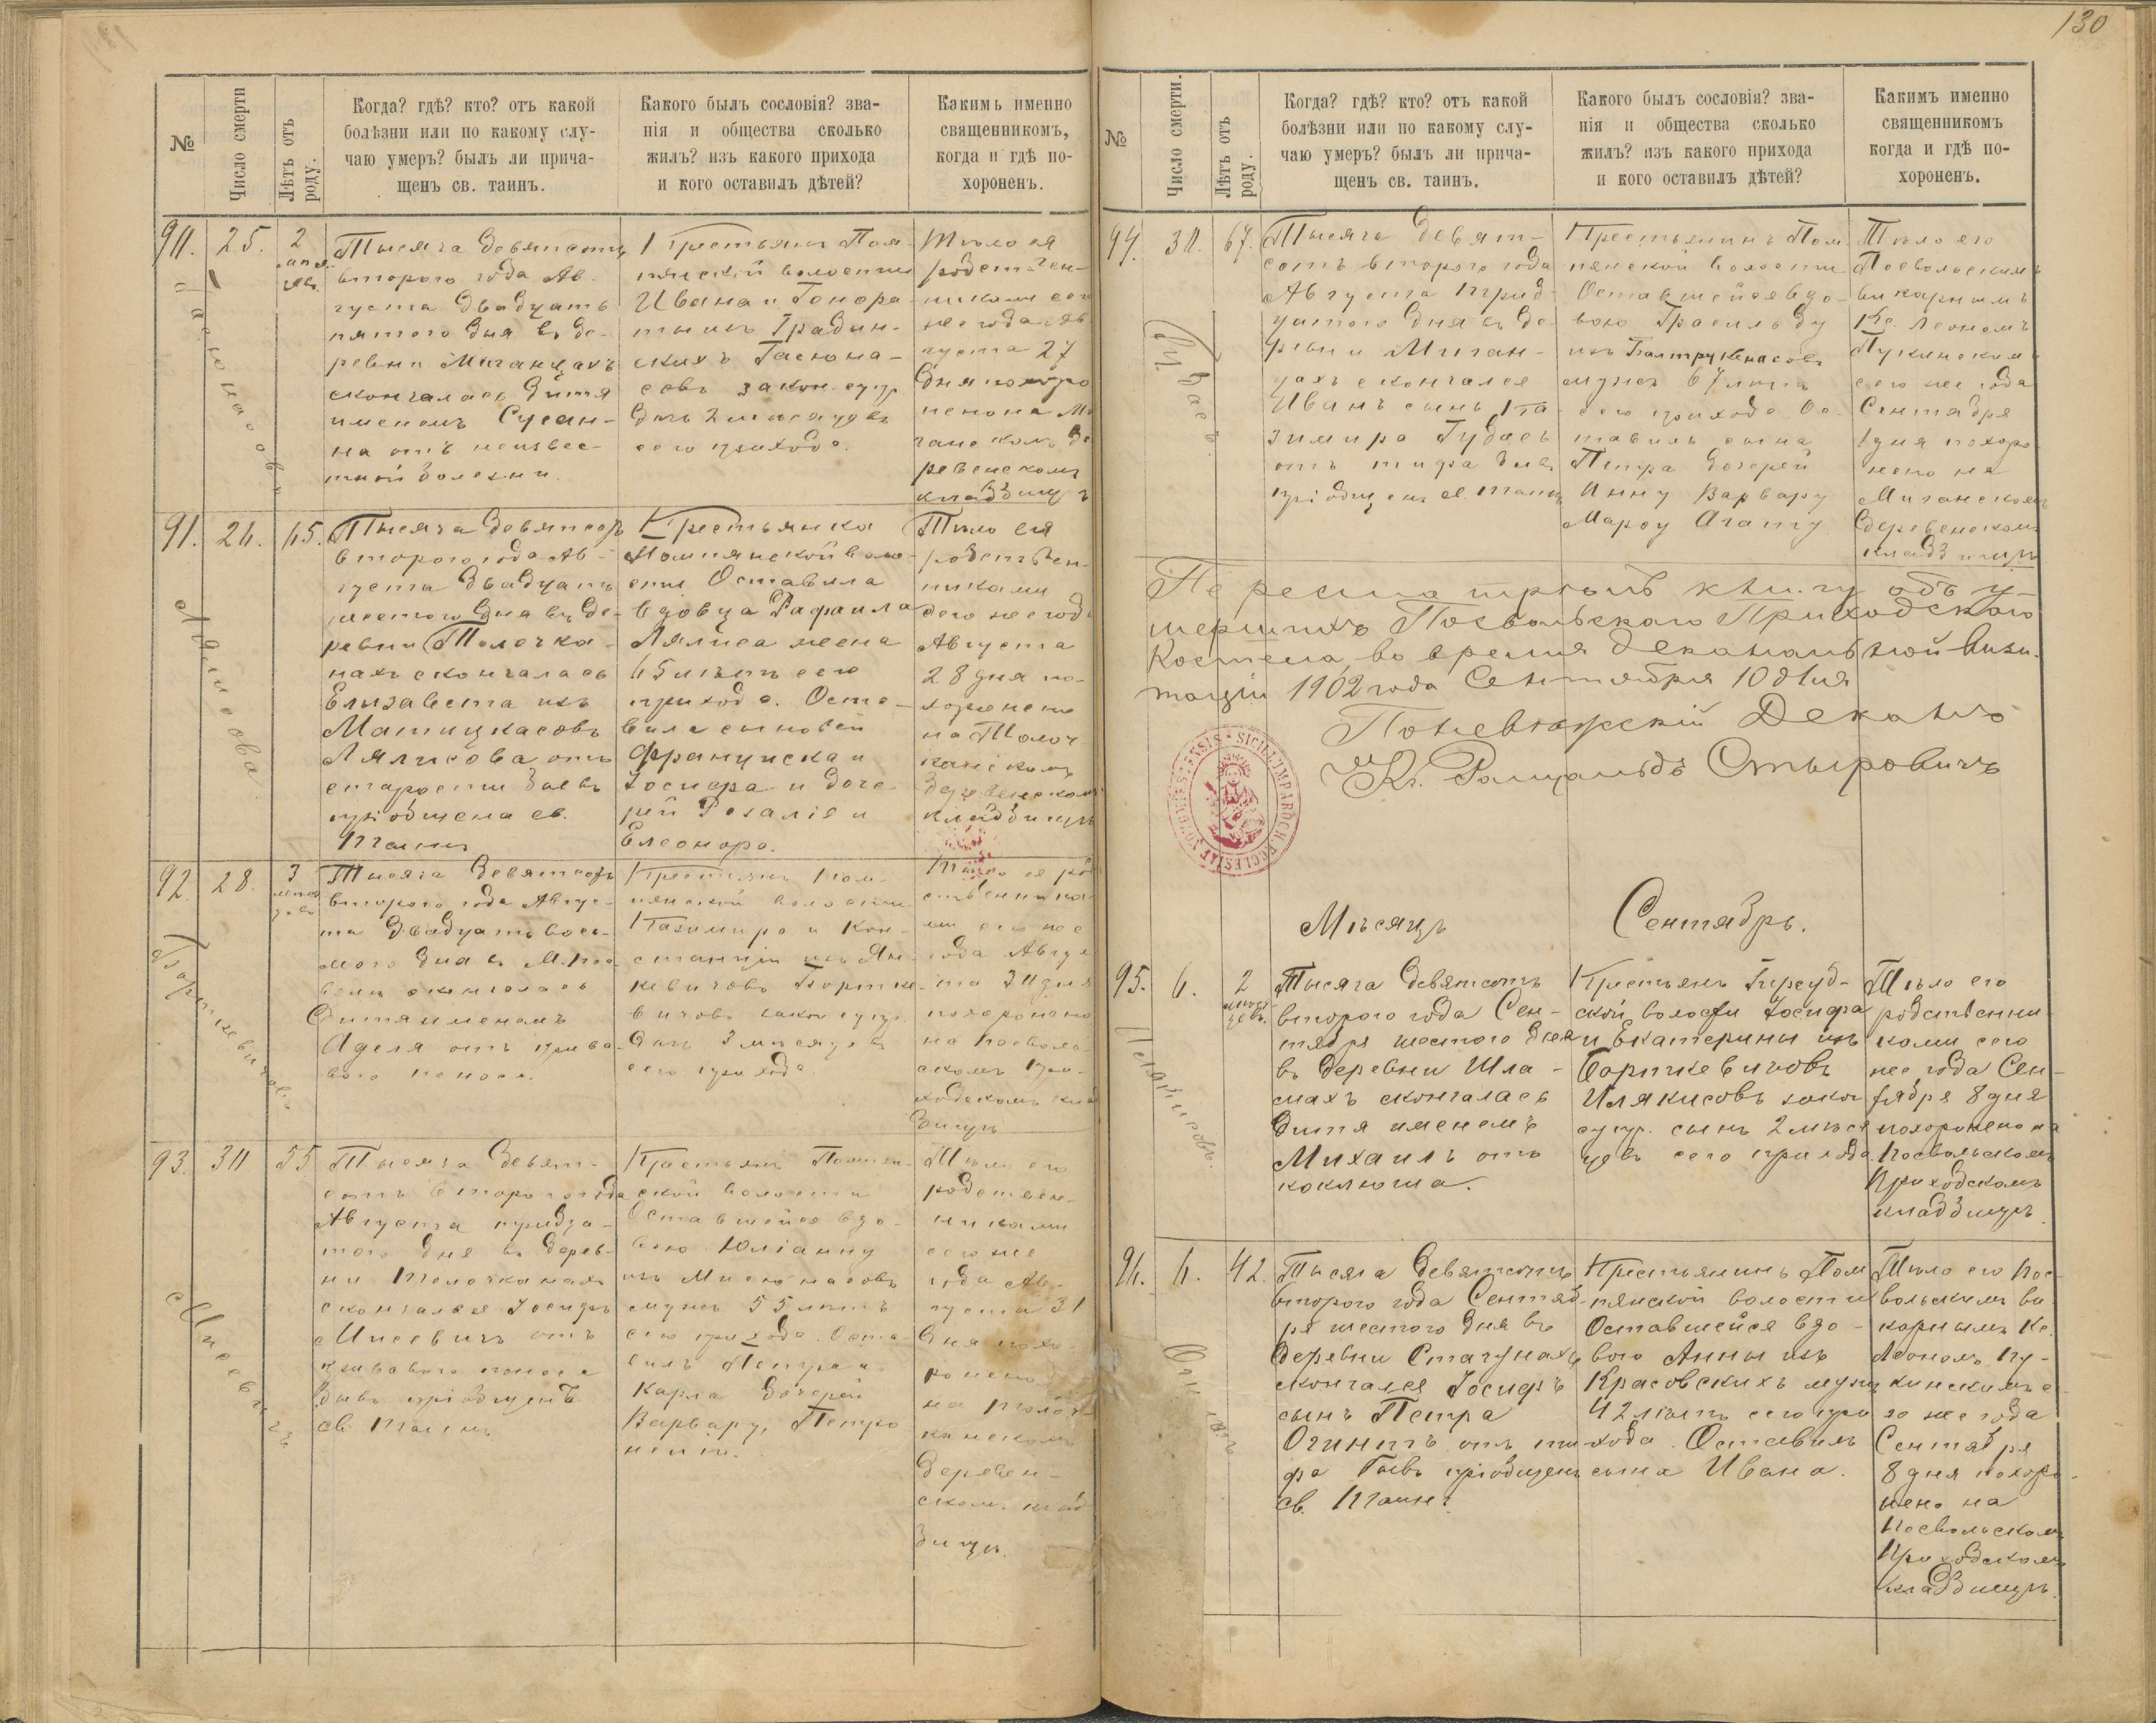 130
№
Число смерти
Лѣтъ отъ роду.
Когда? гдѣ? кто? отъ какой
болѣзни или по какому слу-
чаю умеръ? былъ ли прича-
щенъ св. таинъ.
Какого былъ сословія? зва-
нія и общества сколько
жилъ? изъ какого прихода
и кого оставилъ дѣтей?
Какимъ именно
священникомъ,
когда и гдѣ по-
хороненъ.
90.
25.
2
мѣся
цев.
Тысяча девятсотъ
второго года Ав-
густа двадцать
пятого дня въ де-
ревни Миганцахъ
скончалась дитя
именемъ Сусан-
на отъ неизвес-
тной болезни.
Крестьянъ Пом-
пянской волости
Ивана и Гонора-
ты изъ Градин-
скихъ
законн. супр.
дочь 2 месяцевъ
сего прихода.
Тѣло ея
родствен-
никами сего
же года Ав
густа 27
дня похоро
нено на Ми
ганском де
ревенскомъ
кладбищѣ
91.
26.
65.
Лялисова
Тысяча девятсотъ
второго года Ав-
густа двадцать
шестого дня въ де-
ревни Толочка-
нахъ скончалась
Елизавета изъ
Лялисова отъ
старости бывъ
пріобщена св.
Таинъ
Крестьянка
Помпянской воло-
сти Оставила
вдовца Рафаила
Лялиса жена
65 лѣтъ сего
прихода. Оста-
вила сыновей
Франциска и
Іосифа и доче-
рей Розалія и
Елеонора.
Тѣло ея
родствен-
никами
сего же года
Августа
28 дня по-
хоронено
на Толоч
канскомъ
деревенскомъ
кладбищѣ
92.
28.
3
мѣся
цевъ
Борткевичовъ
Тысяча девятсотъ
второго года Авгус-
та двадцать вось-
мого дня в М. Пос-
волѣ скончалась
дитя именемъ
Аделя отъ крова-
вого поноса.
Крестьянъ Пом-
пянской волости
Казимира и Кон-
станціи изъ Ян-
кевичовъ Бортке-
вичовъ закон супр.
дочь 3 мѣсяцевъ
сего прихода.
Тѣло ея род
ственника-
ми сего же
года Авгус
та 30 дня
похоронено
на Посволь-
скомъ при-
ходскомъ клад
бищѣ
93.
30
55
Мисевичъ
Тысяча девят-
сотъ второго года
Августа тридца-
того дня въ дерев-
ни Толочканахъ
скончался Іосифъ
Мисевичъ отъ
кровавого поноса
бывъ пріобщенъ
св. Таинъ
Крестьян. Помпян-
ской волости
Оставшейся вдо-
вою Юліанну
изъ Мисюнасовъ
мужъ 55 лѣтъ
сего прихода. Оста-
вилъ Петра и
Карла дочерей
Варвару, Петро
нелію.
Тѣло его
родствен-
никами
сего же
года Ав-
густа 31
дня похо-
ронено
на Толоч
канскомъ
деревен-
скомъ клад
бищѣ.
№
Число смерти.
Лѣтъ отъ роду.
Когда? гдѣ? кто? отъ какой
болѣзни или по какому слу-
чаю умеръ? былъ ли прича-
щенъ св. таинъ.
Какого былъ сословія? зва-
нія и общества сколько
жилъ? изъ какого прихода
и кого оставилъ дѣтей?
Какимъ именно
священникомъ
когда и гдѣ по-
хороненъ.
94.
30.
67.
Гудасъ
Тысяча девят-
сотъ второго года
Августа трид-
цатого дня въ де-
ревни Миган-
цахъ скончался
Иванъ сынъ Ка-
зимира Гудасъ
отъ тифа бывъ
пріобщенъ св. Таинъ
Крестьянинъ Пом
пянской волости
Оставшейся вдо-
вою Грасильду
изъ
мужъ 67 лѣтъ
сего прихода Ос-
тавилъ сына
Петра дочерей
Анну Варвару
Марту Агату
Тѣло его
Посвольскимъ
викарнымъ
Кс. Леономъ
Пукинскимъ
сего же года
Сентября
1 дня похоро
нено на
Миганскомъ
деревенскомъ
кладбищѣ
книгу объ у-
мершихъ Посвольского Приходского
Костела во время Деканальной Визи-
таціи 1902 года Сентября 10 дня
Поневѣжскій Деканъ
Кс. Ромуальдъ Стыровичъ
Мѣсяцъ Сентябрь.
95.
6.
2
мѣся
цевъ.
Тысяча девятсотъ
второго года Сен-
тября шестого дня
въ деревни Шла-
махъ скончалась
дитя именемъ
Михаилъ отъ
коклюша.
Крестьянъ Гирсуд-
ской волости Іосифа
и Екатерины изъ
Бориткевичовъ
Илякисовъ закон
супр. сынъ 2 мѣся
цевъ сего прихода.
Тѣло его
родственни
ками сего
же года Сен-
тября 8 дня
похоронено на
Посвольскомъ
Приходскомъ
кладбищѣ.
96.
6.
42.
Тысяча девятсотъ
второго года Сентяб-
ря шестого дня въ
деревни Стачунахъ
скончался Іосифъ
сынъ Петра
Очинтъ отъ ти-
фа бывъ пріобщенъ
св. Таинъ.
Крестьянинъ Пом
пянской волости
Оставшейся вдо-
вою Анны изъ
Красовскихъ мужъ
42 лѣтъ сего при
хода. Оставилъ
сына Ивана.
Тѣло его Пос-
вольскимъ ви
карнымъ Кс.
Леономъ Пу-
кинскимъ с
го же года
Сентября
8 дня похоро-
нено на
Посвольскомъ
Приходскомъ
кладбищѣ.